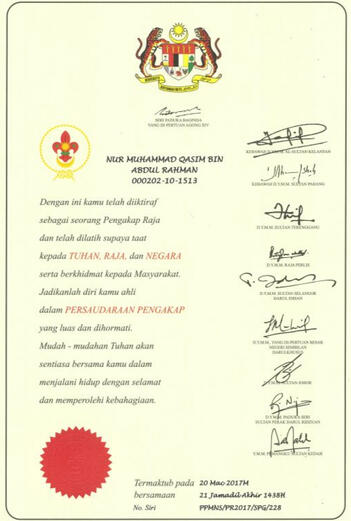 SERI PADUKA BAGINDA
YANG DI PERTUAN AGONG XIV
NUR MUHAMMAD QASIM BIN
ABDUL RAHMAN
000202-10-1513
Dengan ini kamu telah diiktiraf
sebagai seorang Pengakap Raja
dan telah dilatih supaya taat
kepada TUHAN, RAJA, dan NEGARA
serta berkhidmat kepada Masyarakat.
Jadikanlah diri kamu ahli
dalam PERSAUDARAAN PENGAKAP
yang luas dan dihormati.
Mudah - mudahan Tuhan akan
sentiasa bersama kamu dalam
menjalani hidup dengan selamat
dan memperolehi kebahagiaan.
KEBAWAH D.Y.M.M. AL-SULTAN KELANTAN
KEBAWAH D.Y.M.M. SULTAN PAHANG
D.Y.M.M. SULTAN TERENGGANU
D.Y.M.M. RAJA PERLIS
D.Y.M.M. SULTAN SELANGOR
DARUL EHSAN
D.Y.M.M. YANG DI-PERTUAN BESAR
NEGERI SEMBILAN
DARULKHUSUS
SULTAN JOHOR
D.Y.M.M. PADUKA SERI
SULTAN PERAK DARUL RIDZUAN
PEMANGKU SULTAN KEDAH
Termaktub pada 20 Mac 2017M
bersamaan 21 Jamadil Akhir 1438H
No. Siri PPMNS/PR2017/SPG/228